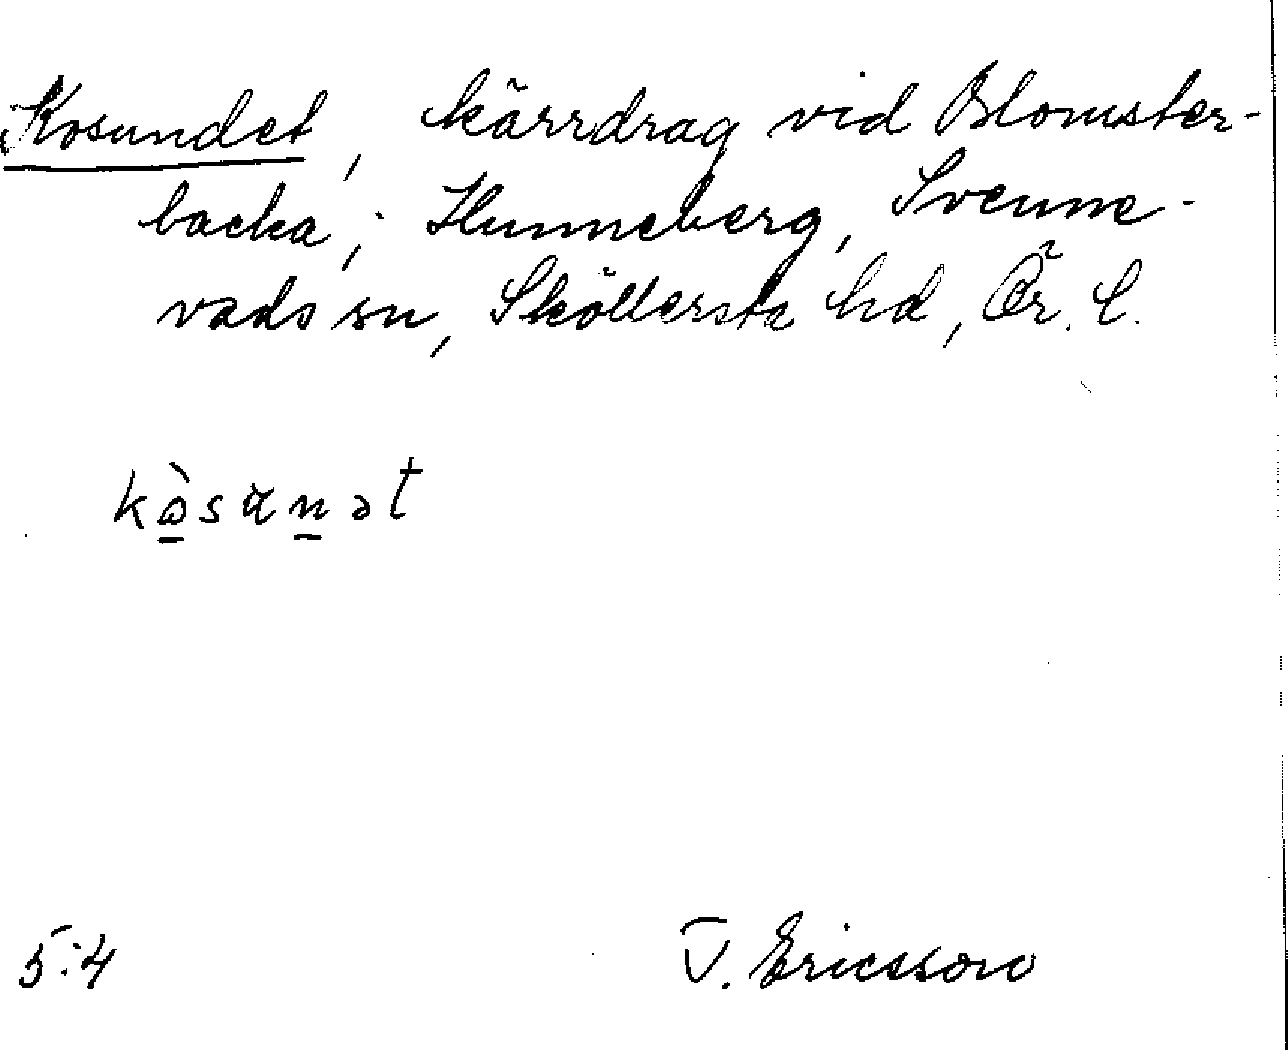 Kosundet, kärrdrag vid Blomster-
backa, Hunneberg, Svenne-
vads sn, Sköllersta hd, Ör. l.
kòsɤnət
5:4 T. Ericsson